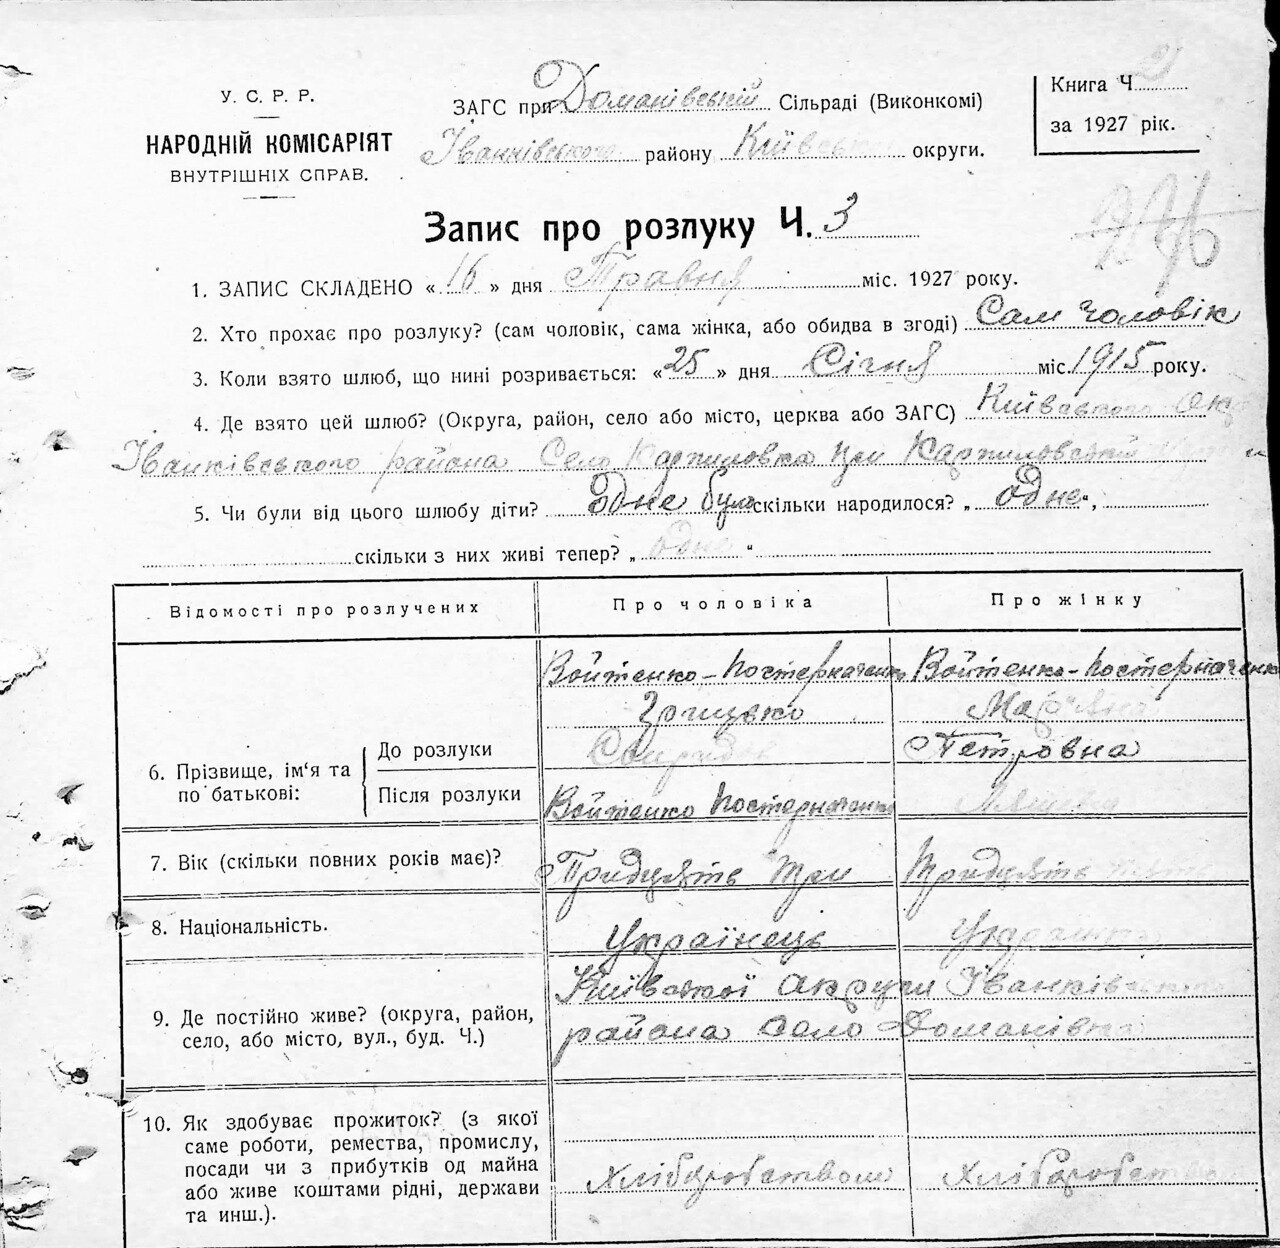 У. С. Р. Р.
НАРОДНІЙ КОМІСАРІЯТ
ВНУТРІШНІХ СПРАВ.
ЗАГС при Доманівській Сільраді (Виконкомі)
Іванківського району Київської округи.
Книга Ч. 2
за 1927 рік.
Запис про розлуку Ч. 3
1. ЗАПИС СКЛАДЕНО «16» дня Травня міс. 1927 року.
2. Хто прохає про розлуку? (сам чоловік, сама жінка, або обидва в згоді) Сам чоловік
3. Коли взято шлюб, що нині розривається: «25» дня Січня міс. 1915 року.
4. Де взято цей шлюб? (Округа, район, село або місто, церква або ЗАГС) Київського окр
Іванківського района Село Карпиловка при Карпиловській
5. Чи були від цього шлюбу діти? Одне було скільки народилося? „одне“,
скільки з них живі тепер? „одне“
Відомості про розлучених
Про чоловіка
Про жінку
6. Прізвище, ім‘я та по батькові:
До розлуки
Після розлуки
Войтенко-Постерначенко
Грицько
Свиридов
Войтенко Постерначенко
Войтенко-Постерначенко
Мар'яна
Петровна
7. Вік (скільки повних років має)?
Тридцять три
Тридцять
8. Національність.
Українець
Українка
9. Де постійно живе? (округа, район,
село, або місто, вул., буд. Ч.)
Київської округи Іванківського
района село Доманівка
10. Як здобуває прожиток? (з якої
саме роботи, ремества, промислу,
посади чи з прибутків од майна
або живе коштами рідні, держави
та инш.).
Хліборобством
Хліборобством